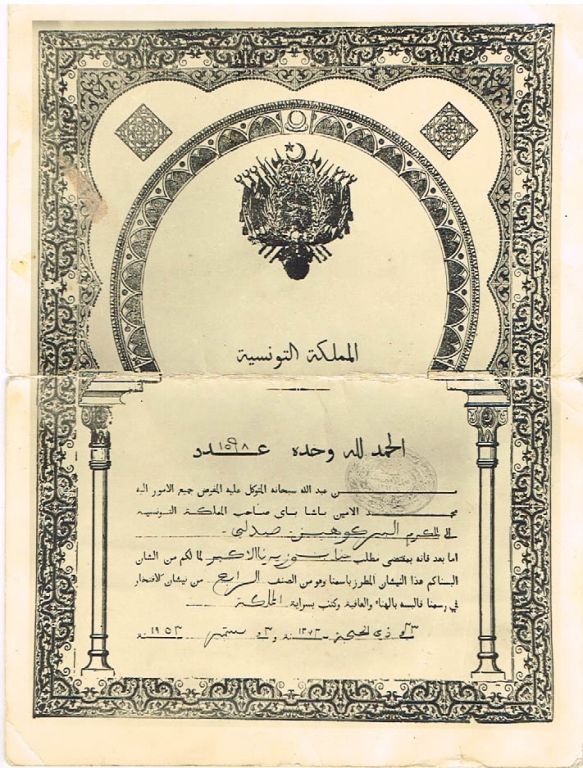 المملكة التونسية
الحمد لله وحده عدد ١٥٩٨
من عبد الله سبحانه المتوكل عليه المفوض جميع الامور اليه
محمد الامين باشا باي صاحب المملكة التونسية
الى المكرم
اما بعد فانه بمقتضى مطلب وزيرنا الاكبر لما لكم من الشان
البسناكم هذا النيشان المطرز باسمنا وهو من الصنف الرابع من نيشان الافتخار
في رسمنا فالبسه بالهناء والعافية وكتب بسراية المملكة
في ذي الحجة سنة ١٣٧٢ وفي سبتمبر سنة ١٩٥٣